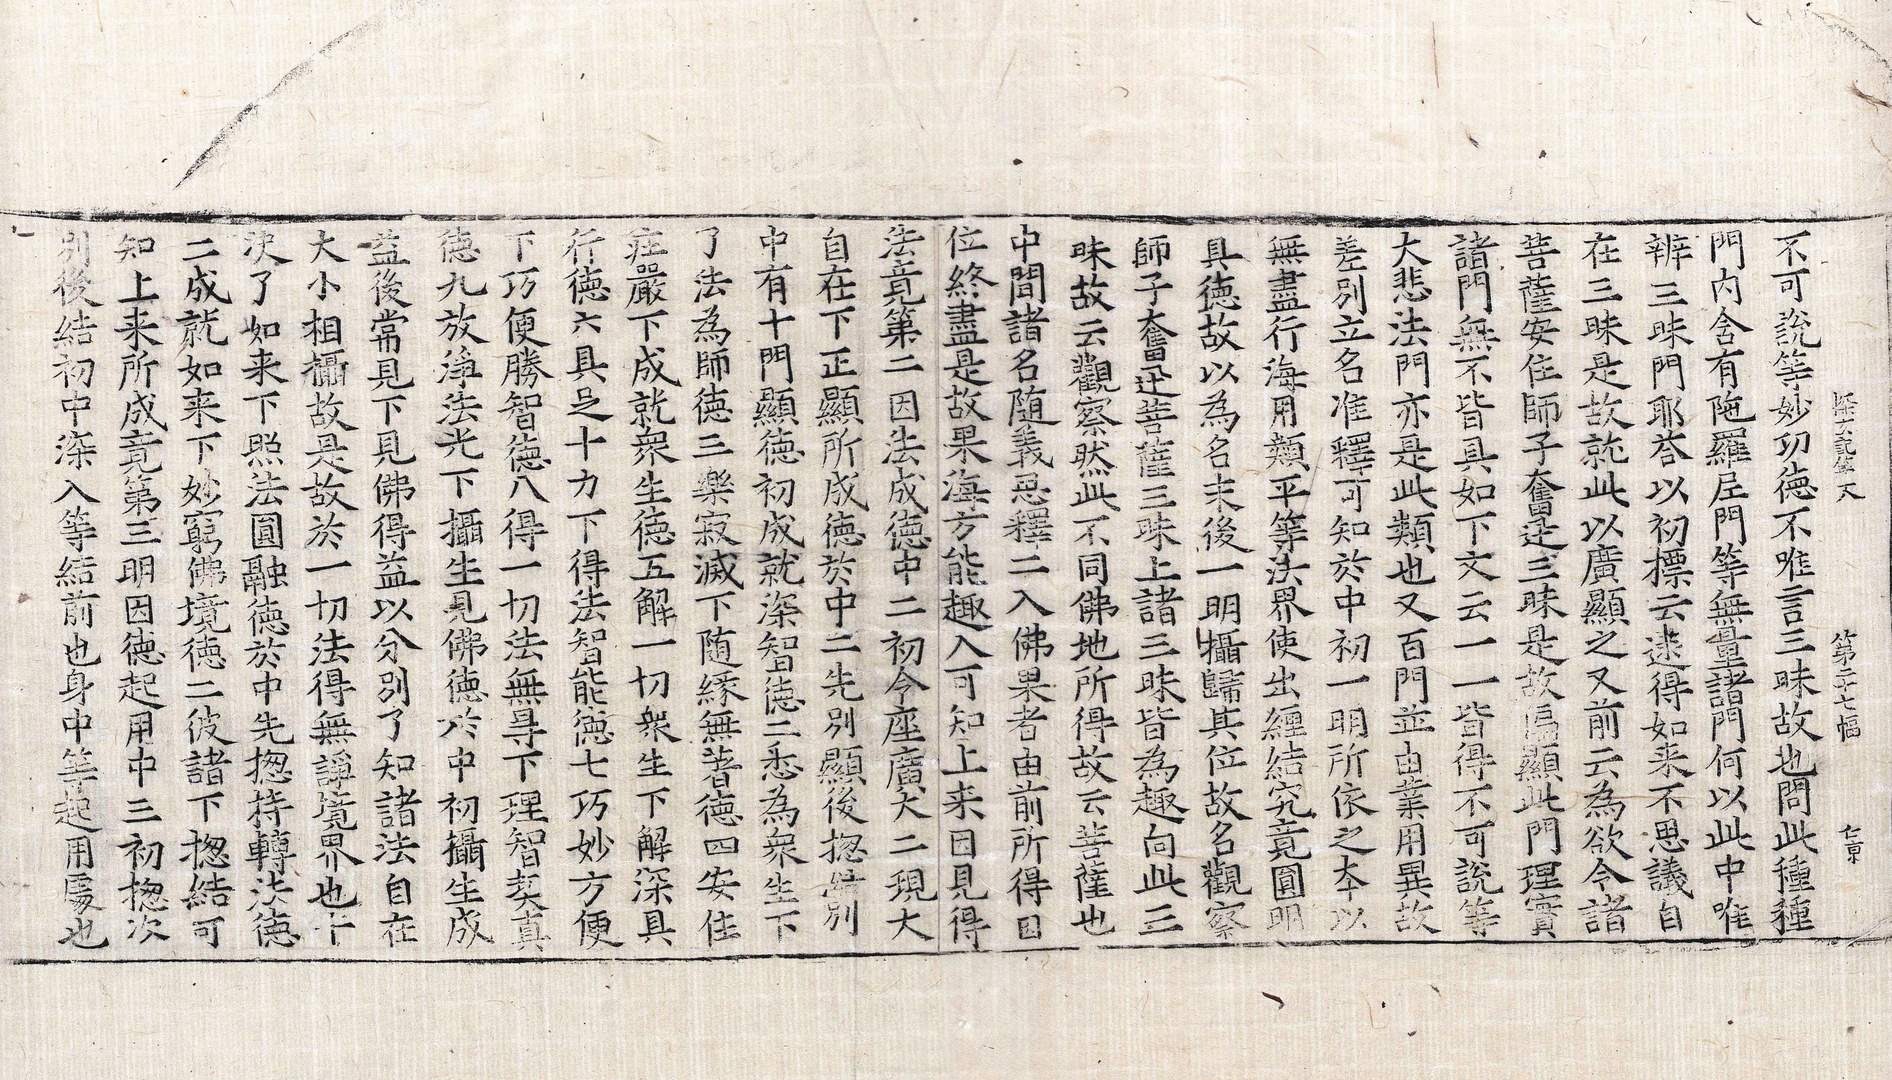 探玄記第六 第三十七幅 仁京
不可說等妙功德不唯言三昧故也問此種種
門內含有陁羅尼門等無量諸門何以此中唯
辨三昧門耶荅以初摽云逮得如来不思議自
在三昧是故就此以廣顯之又前云為欲令諸
菩薩安住師子奮迅三昧是故偏顯此門理實
諸門無不皆具如下文云一一皆得不可說等
大悲法門亦是此類也又百門並由業用異故
差別立名准釋可知於中初一明所依之本以
無盡行海用顯平等法界使出纏結究竟圓明
具德故以為名末後一明攝歸其位故名觀察
師子奮迅菩薩三昧上諸三昧皆為趣向此三
昧故云觀察然此不同佛地所得故云菩薩也
中間諸名隨義思釋二入佛果者由前所得因
位終盡是故果海方能趣入可知上来因見得
法竟第二因法成德中二初令座廣大二現大
自在下正顯所成德於中二先別顯後揔結別
中有十門顯德初成就深智德二悉為衆生下
了法為師德三樂寂滅下随緣無著德四安住
㽵嚴下成就衆生德五解一切衆生下解深具
行德六具足十力下得法智能德七巧妙方便
下巧便勝智德八得一切法無㝵下理智契真
德九放淨法光下攝生見佛德於中初攝生成
益後常見下見佛得益以分別了知諸法自在
大小相攝故是故於一切法得無諍境界也十
決了如来下照法圓融德於中先揔持轉法德
二成就如来下妙窮佛境德二彼諸下揔結可
知上来所成竟第三明因德起用中三初揔次
別後結初中深入等結前也身中等起用處也